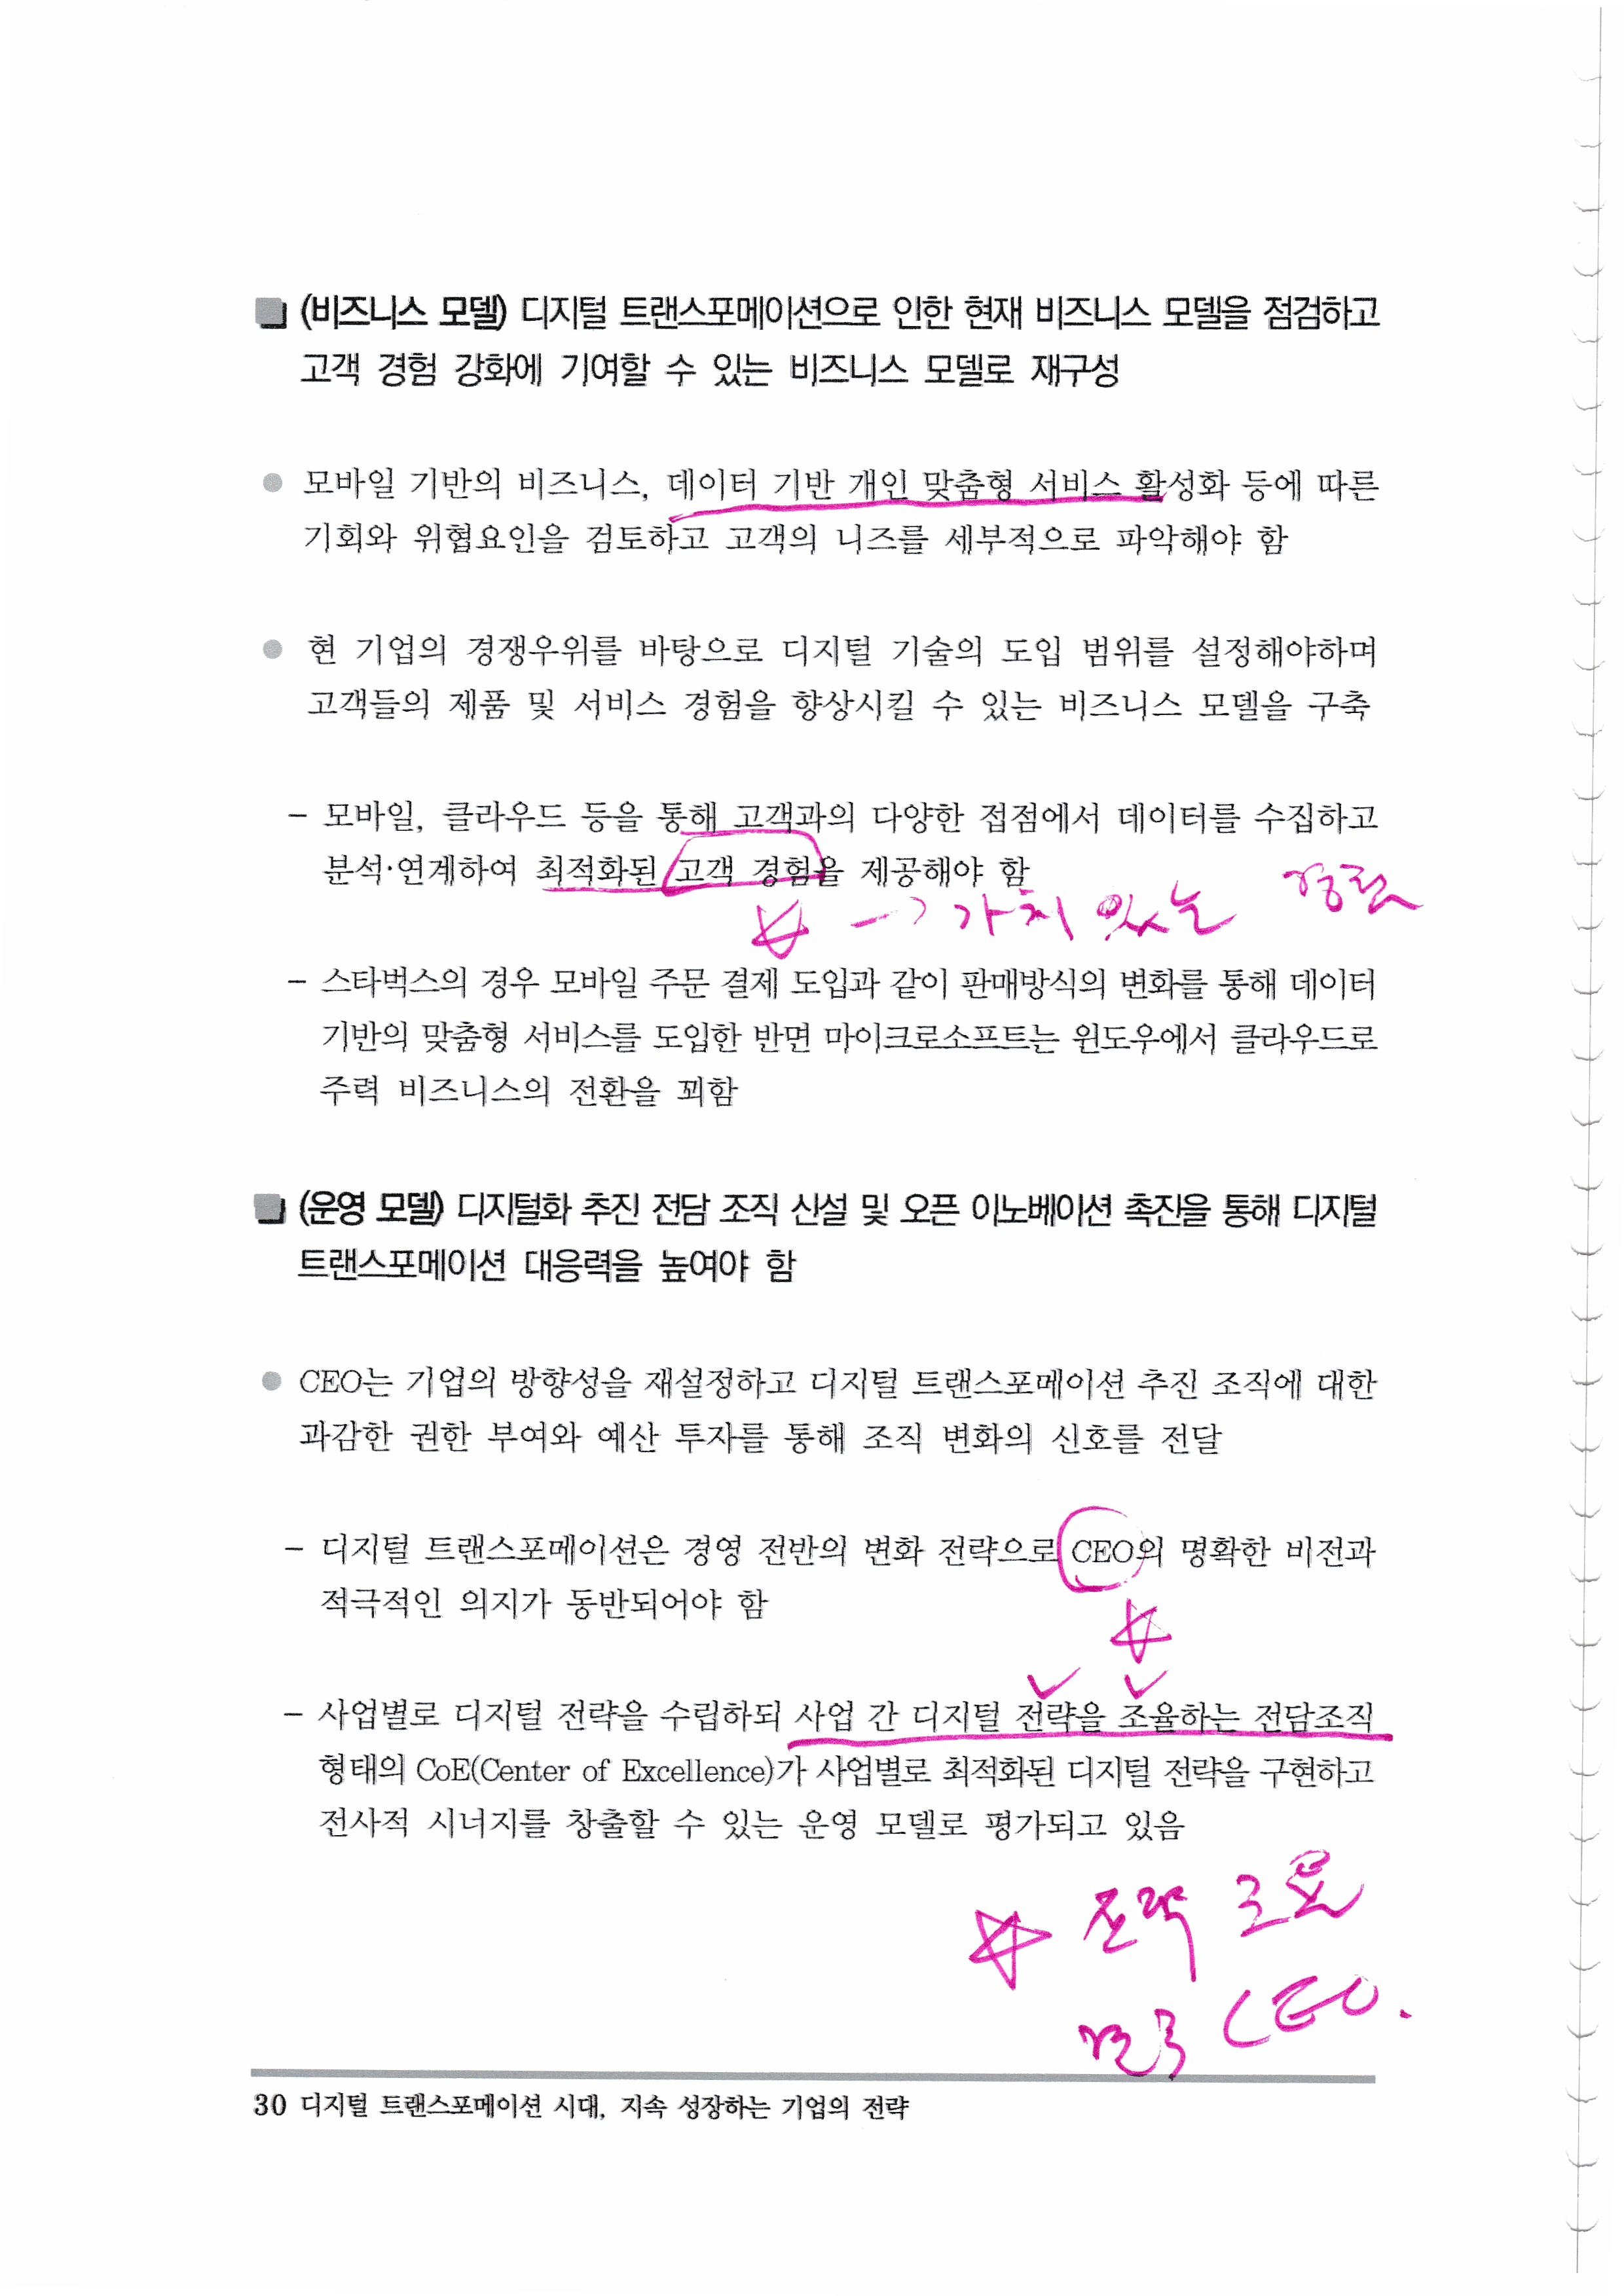 (비즈니스 모델) 디지털 트랜스포메이션으로 인한 현재 비즈니스 모델을 점검하고
고객 경험 강화에 기여할 수 있는 비즈니스 모델로 재구성
● 모바일 기반의 비즈니스, 데이터 기반 개인 맞춤형 서비스 활성화 등에 따른
기회와 위협요인을 검토하고 고객의 니즈를 세부적으로 파악해야 함
● 현 기업의 경쟁우위를 바탕으로 디지털 기술의 도입 범위를 설정해야하며
고객들의 제품 및 서비스 경험을 향상시킬 수 있는 비즈니스 모델을 구축
- 모바일, 클라우드 등을 통해 고객과의 다양한 접점에서 데이터를 수집하고
분석·연계하여 최적화된 고객 경험을 제공해야 함
☆ → 가치 있는 경험
- 스타벅스의 경우 모바일 주문 결제 도입과 같이 판매방식의 변화를 통해 데이터
기반의 맞춤형 서비스를 도입한 반면 마이크로소프트는 윈도우에서 클라우드로
주력 비즈니스의 전환을 꾀함
(운영 모델) 디지털화 추진 전담 조직 신설 및 오픈 이노베이션 촉진을 통해 디지털
트랜스포메이션 대응력을 높여야 함
● CEO는 기업의 방향성을 재설정하고 디지털 트랜스포메이션 추진 조직에 대한
과감한 권한 부여와 예산 투자를 통해 조직 변화의 신호를 전달
- 디지털 트랜스포메이션은 경영 전반의 변화 전략으로 CEO의 명확한 비전과
적극적인 의지가 동반되어야 함
- 사업별로 디지털 전략을 수립하되 사업 간 디지털 전략을 조율하는 전담조직
형태의 CoE(Center of Excellence)가 사업별로 최적화된 디지털 전략을 구현하고
전사적 시너지를 창출할 수 있는 운영 모델로 평가되고 있음
☆ 전략 조율
결국 CEO.
30 디지털 트랜스포메이션 시대, 지속 성장하는 기업의 전략